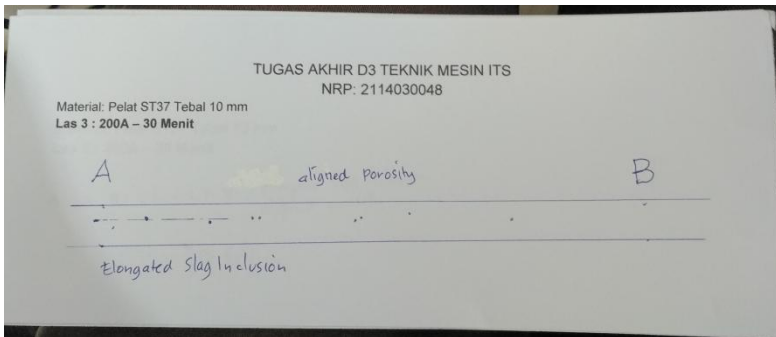 TUGAS AKHIR D3 TEKNIK MESIN ITS
NRP: 2114030048
Material: Pelat ST37 Tebal 10 mm
Las 3 : 200A – 30 Menit
A aligned Porosity B
Elongated Slag Inclusion